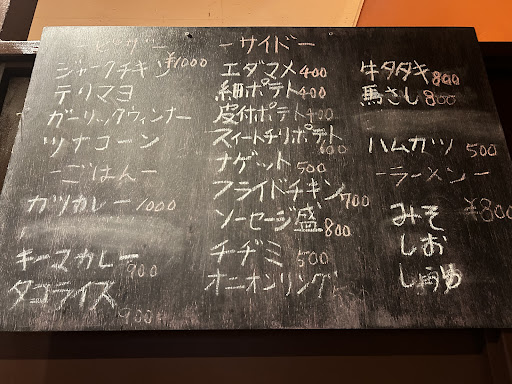 ーピザー
ジャークチキン ¥1000
テリマヨ
ガーリックウィンナー
ツナコーン
ーごはんー
カツカレー 1000
キーマカレー 900
タコライス 900
ーサイドー
エダマメ 400
細ポテト 400
皮付ポテト 400
スイートチリポテト 600
ナゲット 500
フライドチキン 700
ソーセージ盛 800
チヂミ 500
オニオンリング
牛タタキ 800
馬さし 800
ハムカツ 500
ーラーメンー
¥800
みそ
しお
しょうゆ